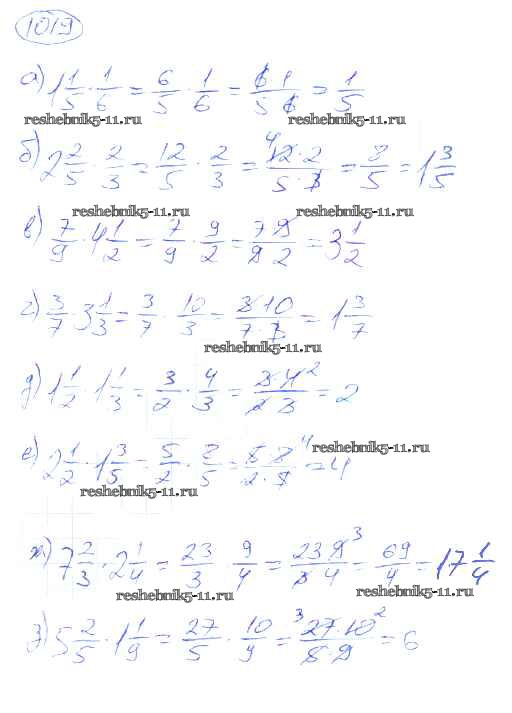 1019
а) 1 1/5 · 1/6 = 6/5 · 1/6 = 6·1/5·6 = 1/5
reshebnik5-11.ru reshebnik5-11.ru
б) 2 2/5 · 2/3 = 12/5 · 2/3 = 4 12·2/5·3 = 8/5 = 1 3/5
reshebnik5-11.ru reshebnik5-11.ru
в) 7/9 · 4 1/2 = 7/9 · 9/2 = 7 9/9 2 = 3 1/2
г) 3/7 · 3 1/3 = 3/7 · 10/3 = 3·10/7·3 = 1 3/7
reshebnik5-11.ru
д) 1 1/2 · 1 1/3 = 3/2 · 4/3 = 3·4 2/2 3 = 2
е) 2 1/2 · 1 3/5 = 5/2 · 8/5 = 5·8 4/2·5 = 4
reshebnik5-11.ru
reshebnik5-11.ru
ж) 7 2/3 · 2 1/4 = 23/3 · 9/4 = 23 9 3/3 4 = 69/4 = 17 1/4
reshebnik5-11.ru reshebnik5-11.ru
з) 5 2/5 · 1 1/9 = 27/5 · 10/9 = 3 27·10 2/5·9 = 6